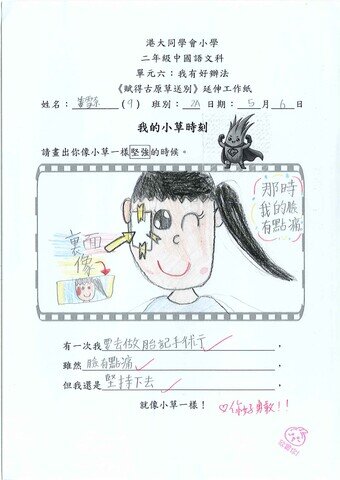 港大同學會小學
二年級中國語文科
單元六：我有好辦法
《賦得古原草送別》延伸工作紙
姓名：(9) 班別：2A 日期：5月6日
我的小草時刻
請畫出你像小草一樣堅強的時候。
那時
我的臉
有點痛
裏面
像
有一次我要去做胎記手術行，
雖然臉有點痛，
但我還是堅持下去。
就像小草一樣！
你好勇敢!!